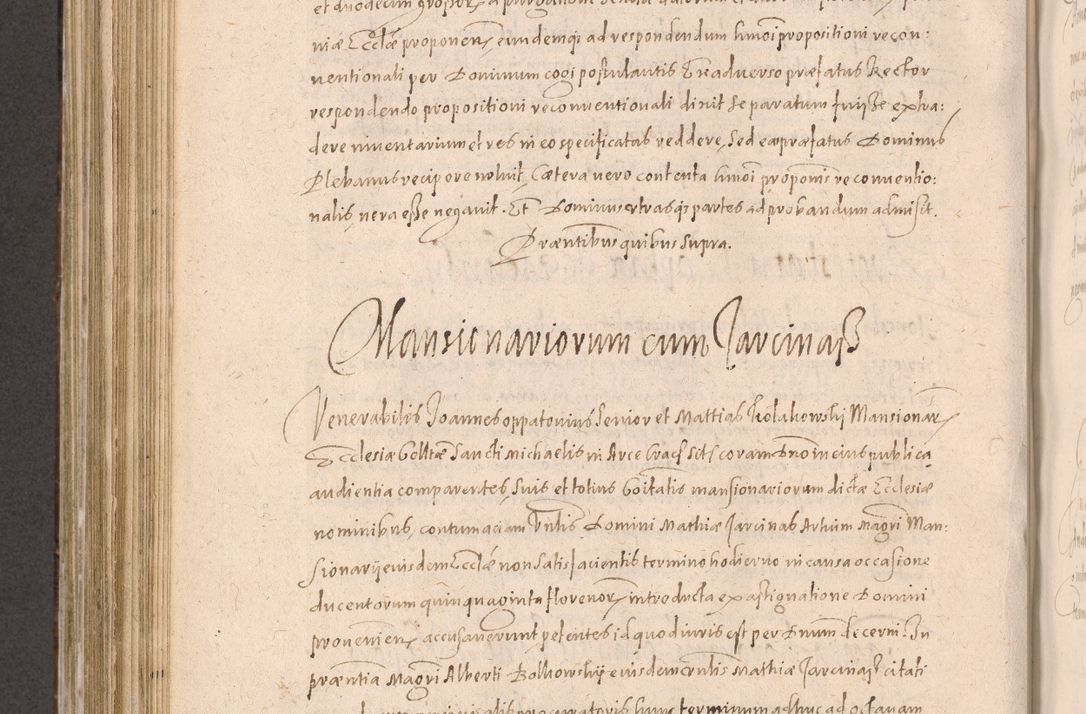 niæ Ecclæ proponen eundemq ad respondendum hmoi propositioni recon:
ventionali per Dominum cogi postulantis Ex adverso præfatus Rector
respondendo propositioni reconventionali dixit se paratum fuisse extra:
dere inventarium et res in eo specificatas reddere, Sed ea præfatus Dominus
Plebanus recipere noluit, Cætera vero contenta hmoi propönis reconventio:
nalis vera esse negavit. Et Dominus utrasq partes ad probandum admisit.
Præntibus quibus supra.
Mansionariorum cum Jarcinass
Venerabilis Joannes oppatovius Senior et Mattias Kolakowskij Mansionar
Ecclesiæ Colltæ Sancti Michaelis in Arce Crac sit coram Dno in eius publica
audientia comparentes, Suis et totius Coitatis mansionariorum dictæ Ecclesiæ
nominibus, contumaciam Vnlis Domini Mathiæ Jarcinas Artium Magri Man:
sionarij eiusdem Ecclæ non satisfacientis termino hodierno in causa occasione
ducentorum quinquaginta florenor introducta ex assignatione Domini
provenien accusaverunt petentes id quod iuris est per Dnum decerni. In
præntia Magri Alberti Bolkowskij eiusdem Vnlis Mathiæ Jarcinass citati
procuratoris hunc terminum adhuc ad octavam